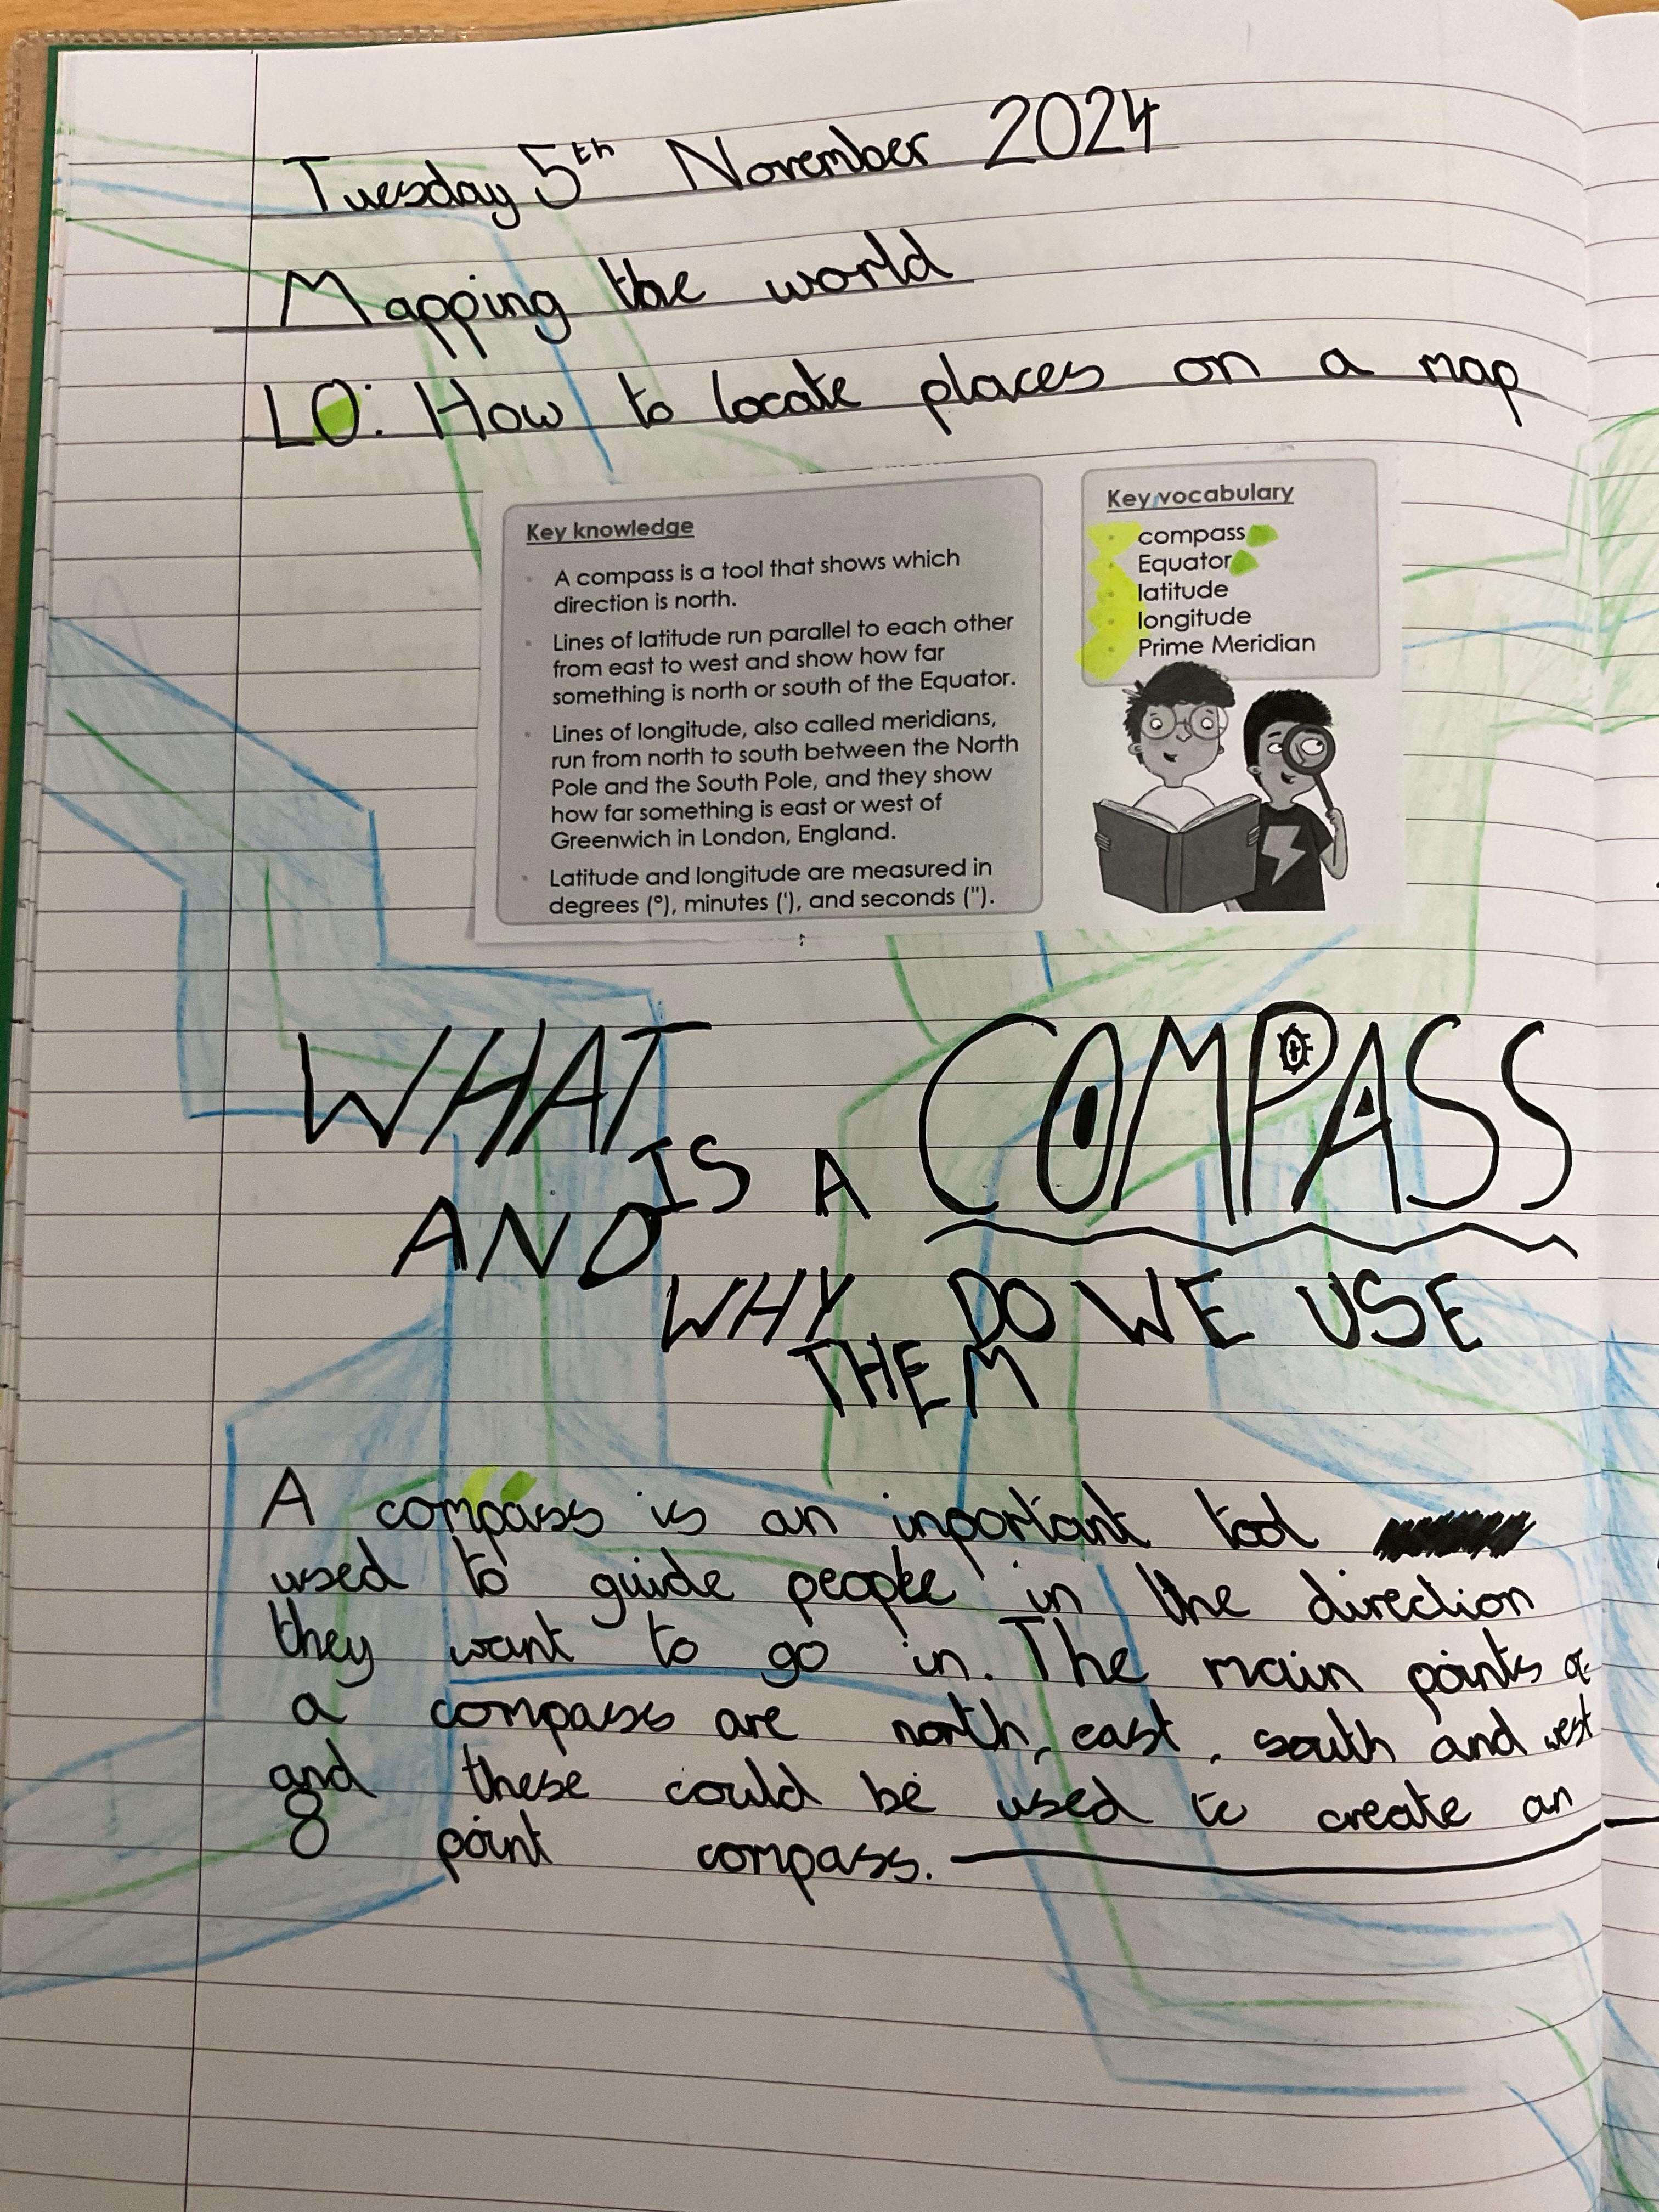 Tuesday 5th November 2024
Mapping the world
LO: How to locate places on a map
Key knowledge
A compass is a tool that shows which
direction is north.
Lines of latitude run parallel to each other
from east to west and show how far
something is north or south of the Equator.
Lines of longitude, also called meridians,
run from north to south between the North
Pole and the South Pole, and they show
how far something is east or west of
Greenwich in London, England.
Latitude and longitude are measured in
degrees (°), minutes ('), and seconds (").
Key vocabulary
compass
Equator
latitude
longitude
Prime Meridian
WHAT
IS A COMPASS
AND
WHY DO WE USE
THEM
A compass is an inportant tool
used to guide people in the direction
they want to go in. The main points
a compass are north, east, south and west
and these could be used to create an
8 point compass.